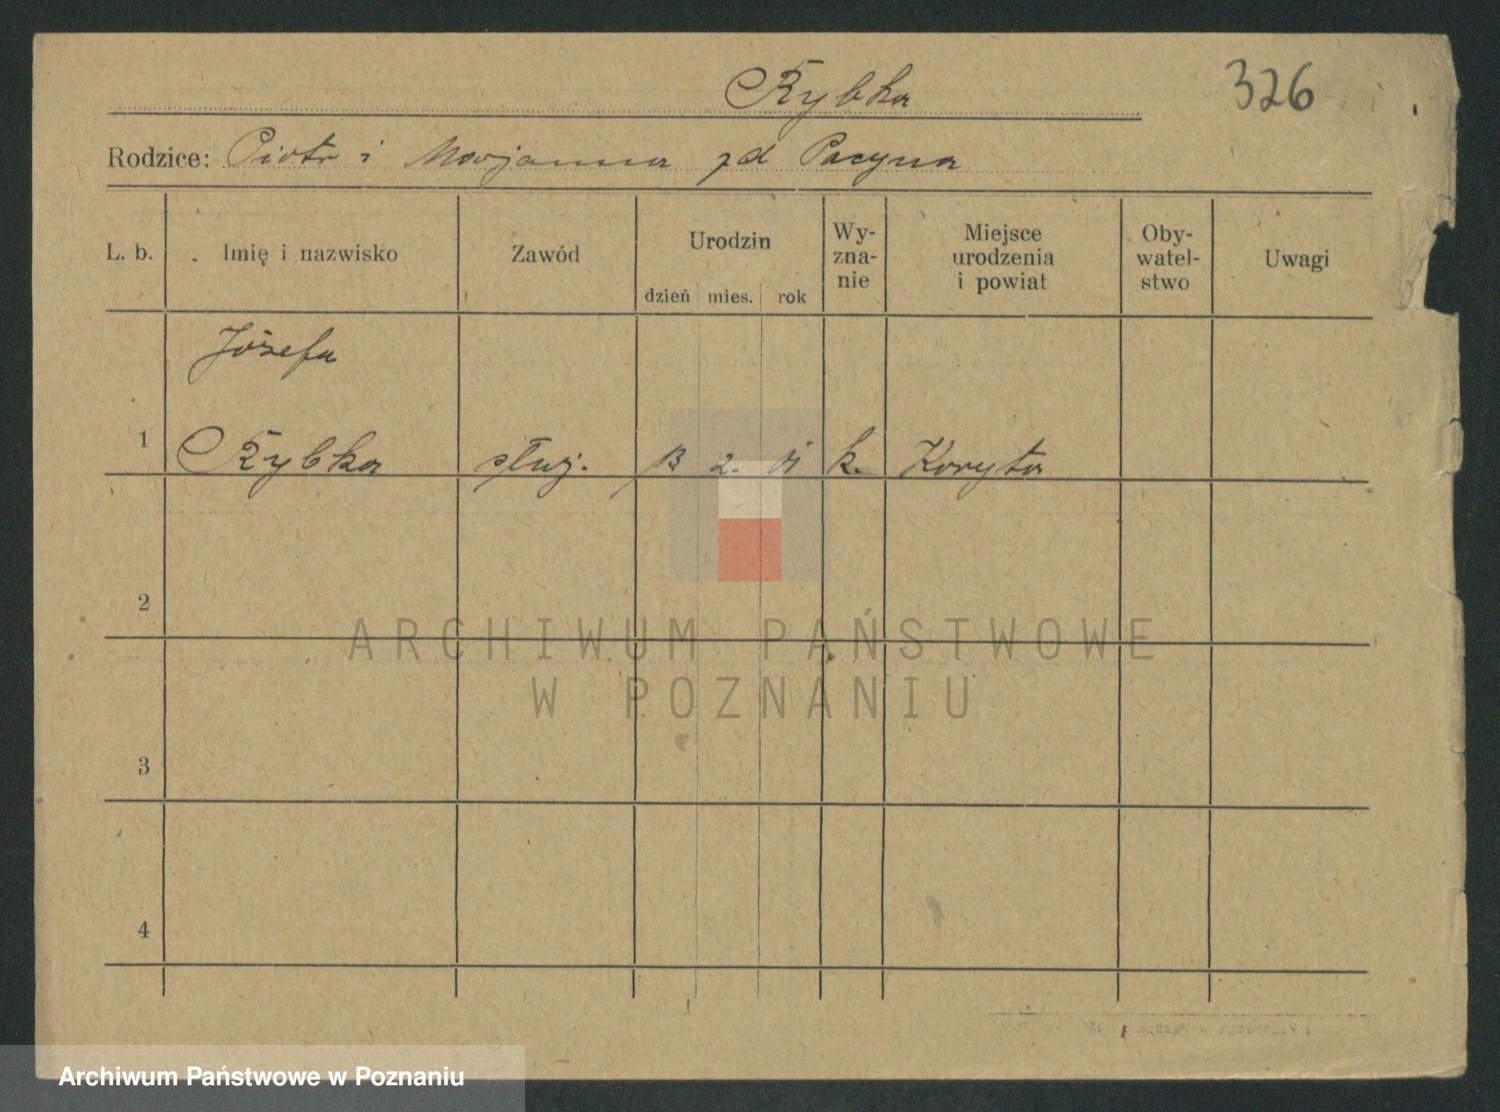 Rybka
326
Rodzice: Piotr i Marjanna zd Pacyna
L. b.
Imię i nazwisko
Zawód
Urodzin
dzień mies. rok
Wy-
zna-
nie
Miejsce
urodzenia
i powiat
Oby-
watel-
stwo
Uwagi
Józefa
1 Rybka służ. 13 2. k. Koryta
2
3
4
ARCHIWUM PAŃSTWOWE
W POZNANIU
Archiwum Państwowe w Poznaniu